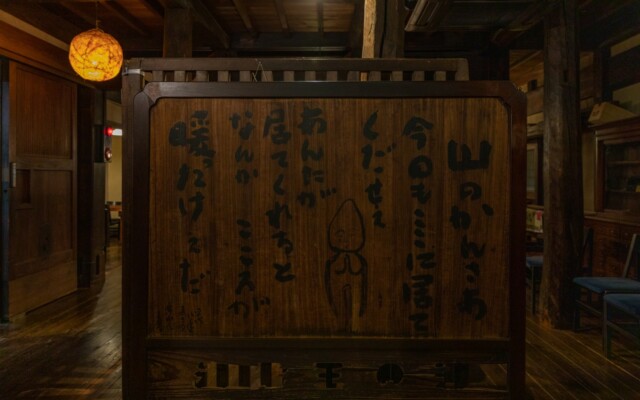 山のかんさあ
今日もここに居て
くだせえ
あんたが
居てくれると
なんか こころが
暖ったけえだ